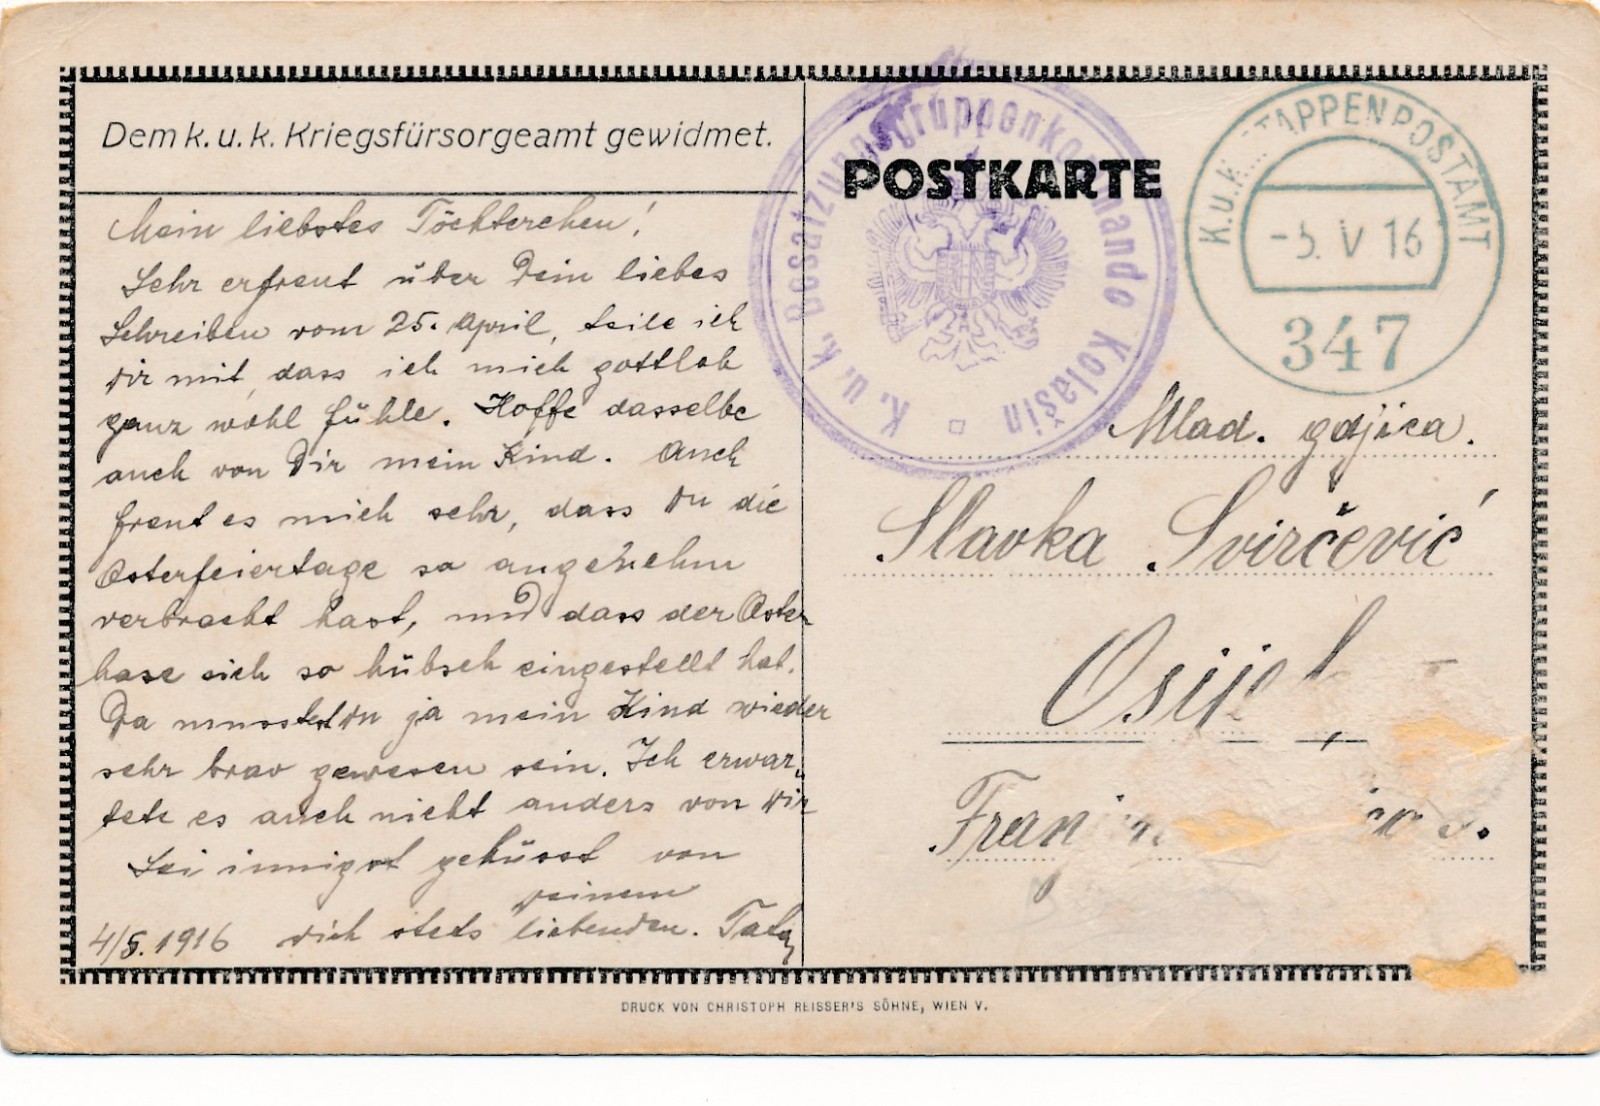 Dem k. u. k. Kriegsfürsorgeamt gewidmet.
Mein liebstes Töchterchen!
Sehr erfreut über Dein liebes
Schreiben vom 25. April, teile ich
Dir mit, dass ich mich gottlob
ganz wohl fühle. Hoffe dasselbe
auch von Dir mein Kind. Auch
freut es mich sehr, dass Du die
Osterfeiertage so angenehm
verbracht hast, und dass der Oster
hase sich so hübsch eingestellt hat.
Da musstest Du ja mein Kind wieder
sehr brav gewesen sein. Ich erwar„
tete es auch nicht anders von Dir
Sei innigst geküsst von
Deinem
4/5. 1916 Dich stets liebenden. Tata
POSTKARTE
K. u. k. Besatzungsgruppenkommando Kolašin
K. u. k. ETAPPENPOSTAMT
-5. V 16
347
Mlad. gdjica.
Slavka Svirčević
DRUCK VON CHRISTOPH REISSER'S SÖHNE, WIEN V.